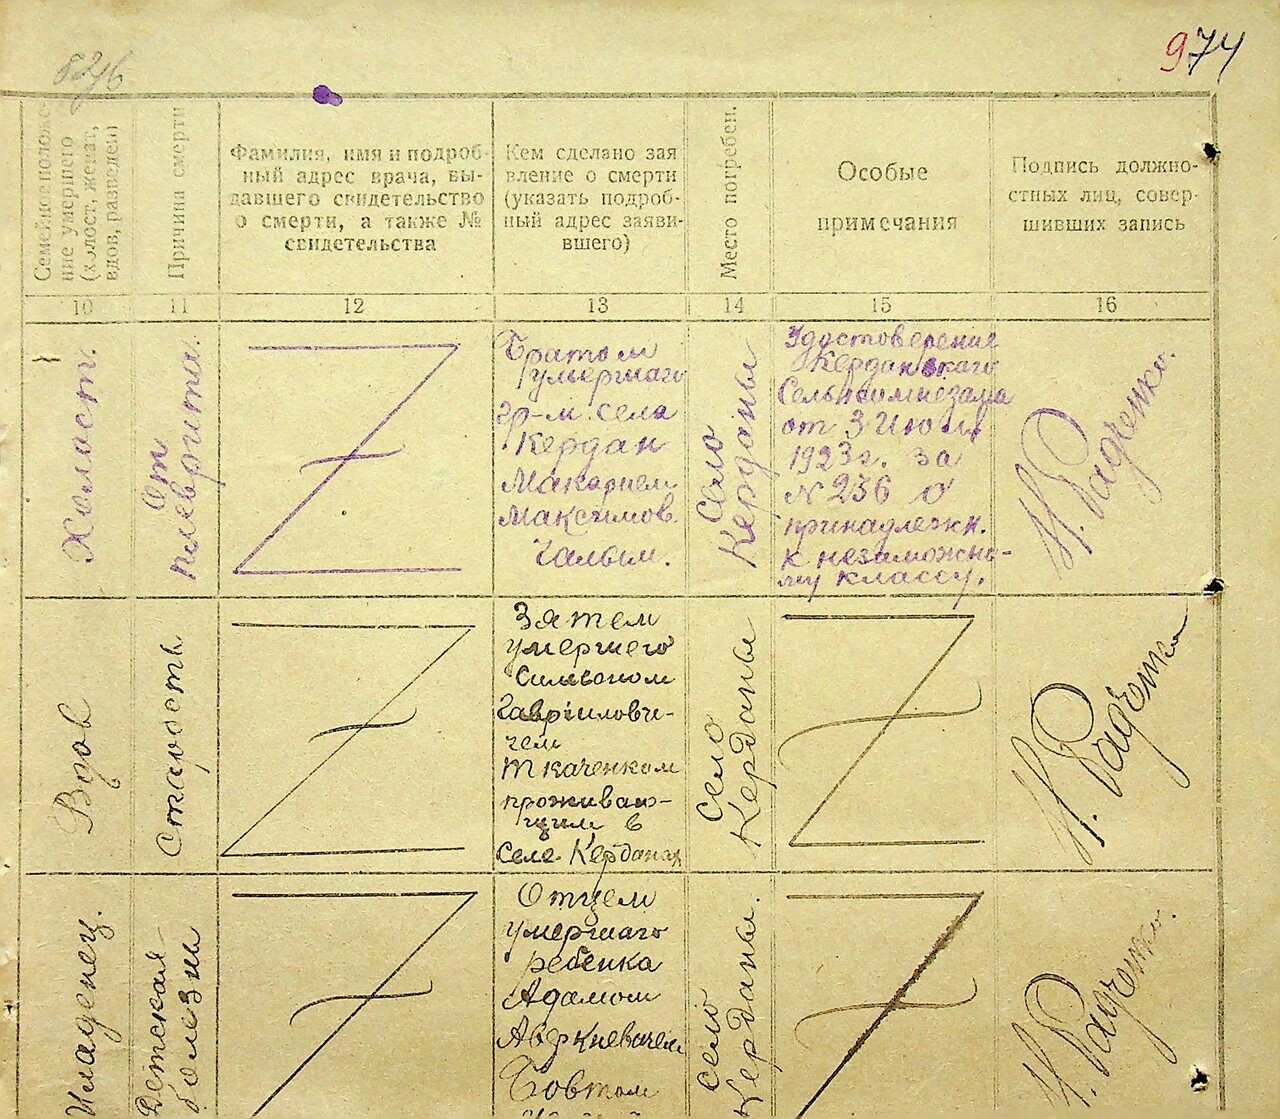 826
974
Семейное положе-
ние умершего
(холост, женат,
вдов, разведен)
Причина смерти
Фамилия, имя и подроб-
ный адрес врача, вы-
давшего свидетельство
о смерти, а также №
свидетельства
Кем сделано зая
вление о смерти
(указать подроб-
ный адрес заяви-
вшего)
Место погребен.
Особые
примечания
Подпись должно-
стных лиц, совер-
шивших запись
10
11
12
13
14
15
16
Холост.
От
плеврита.
Братом
умершаго
гр-м. села
Кердан
Макарием
Максимов.
Чалым.
Село
Керданы
Удостоверение
Керданскаго
Сельком незама
от 3 Июля
1923г. за
№ 236 о
принадлежн.
к незаможно-
му классу.
Н. Радченко.
Вдов
Старость
Зятем
умершего
Симеоном
Гавриилови-
чем
Ткаченком
проживаю-
щим в
селе Керданах
село
Керданы
Н. Радченко
Младенец.
Детская
болезни
Отцем
умершаго
ребенка
Адамом
Аверкиевичем
Бовтом
село
Керданы.
Н. Радченко.